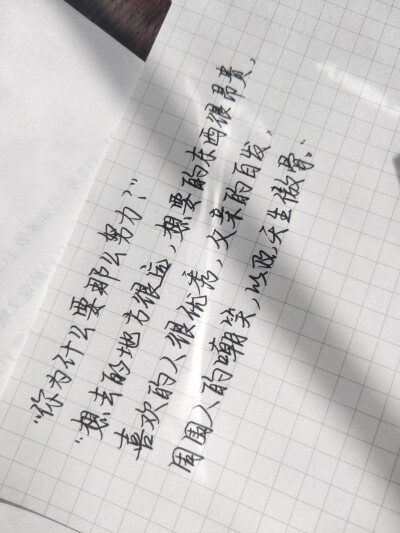 “你为什么要那么努力？”
“想去的地方很远，想要的东西很昂贵，
喜欢的人很优秀，父亲的白发，
周围人的嘲笑，以及，天生傲骨。”